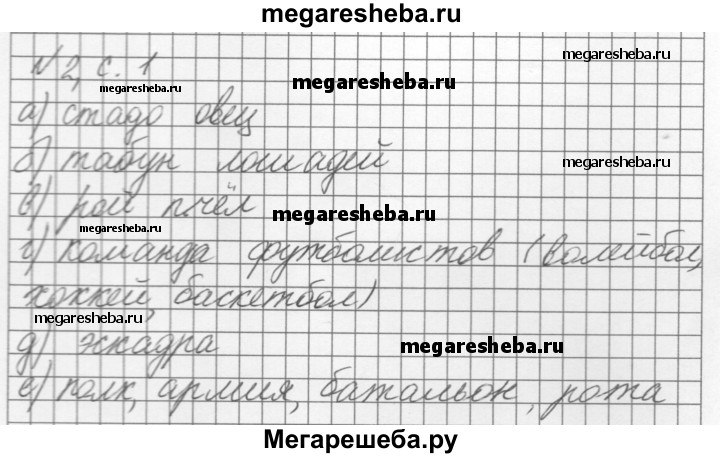 megaresheba.ru
№ 2, с. 1
megaresheba.ru
megaresheba.ru
megaresheba.ru
а) стадо овец
б) табун лошадей
megaresheba.ru
в) рой пчёл
megaresheba.ru
megaresheba.ru
г) команда футболистов (волейбол,
хоккей, баскетбол)
megaresheba.ru
д) эскадра
megaresheba.ru
е) полк, армия, батальон, рота
Мегарешеба.ру